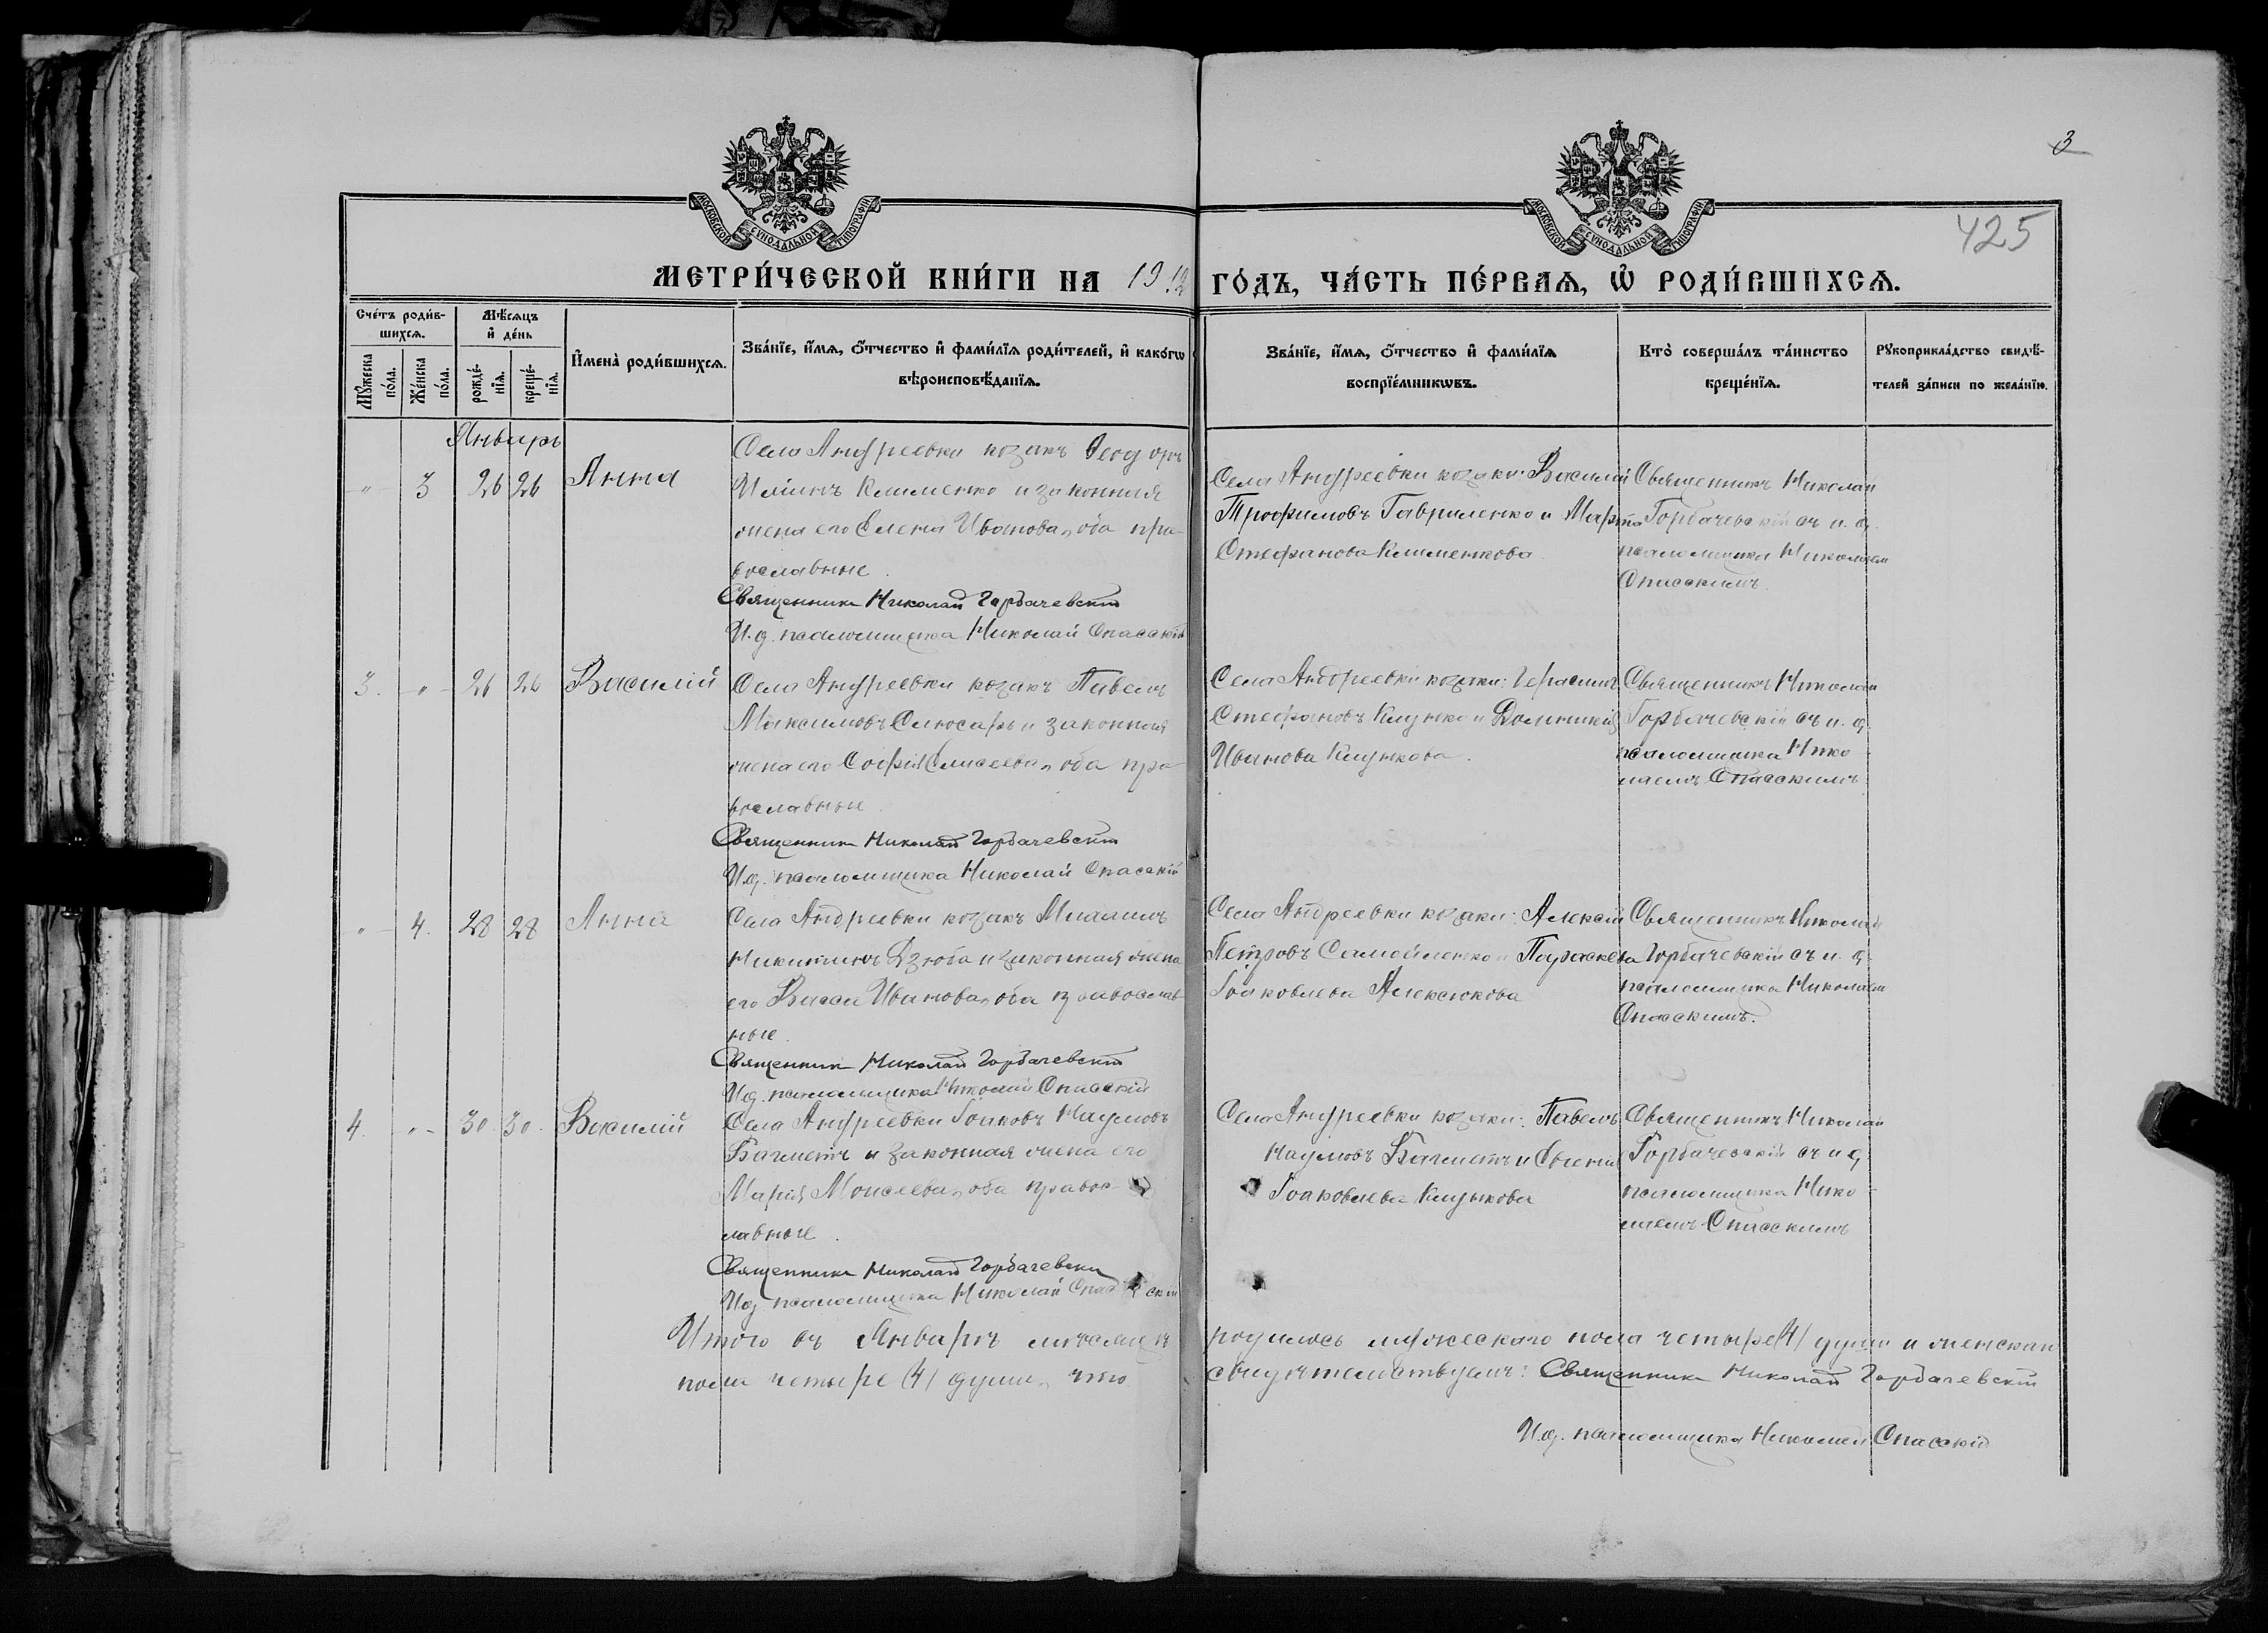 3
425
МОСКОВСКОЙ СѴНОДАЛЬНОЙ ТИПОГРАФІИ
МОСКОВСКОЙ СѴНОДАЛЬНОЙ ТИПОГРАФІИ
МЕТРИ́ЧЕСКОЙ КНИ́ГИ НА 1912 ГО́ДЪ, ЧА́СТЬ ПЕ́РВАѦ, Ѡ҆ РОДИ́ВШИХСѦ.
Сче́тъ роди́в-
шихсѧ.
Мꙋ́жеска по́ла.
Же́нска по́ла.
Мѣ́сѧцъ
и҆ де́нь
рожде́-
нїѧ.
креще́-
нїѧ.
И҆мена̀ роди́вшихсѧ.
Зва́нїе, и҆́мѧ, ѻ҆́тчество и҆ фами́лїѧ роди́телей, и҆ како́гѡ
вѣроисповѣ́данїѧ.
Зва́нїе, и҆́мѧ, ѻ҆́тчество и҆ фами́лїѧ
воспрїе́мникѡвъ.
Кто̀ соверша́лъ та́инство
креще́нїѧ.
Рꙋкоприкла́дство свидѣ́-
телей за́писи по жела́нїю.
Январь
" 3 26 26 Анна
Села Андреевки козакъ Ѳеодоръ
Иліинъ Клименко и законная
жена его Елена Иванова, оба пра-
вославные.
Священникъ Николай Горбачевскій
И. д. псаломщика Николай Спасскій
Села Андреевки козаки: Василій
Трофимовъ Гавриленко и Марѳа
Стефанова Клименкова
Священникъ Николай
Горбачевскій съ и. д.
псаломщика Николаем
Спасскимъ.
3. " 26 26 Василій
Села Андреевки козакъ Павелъ
Максимовъ Слюсарь и законная
жена его Софія Елисеева, оба пра-
вославные.
Священникъ Николай Горбачевскій
И. д. псаломщика Николай Спасскій
Села Андреевки козаки: Герасимъ
Стефановъ Клунко и Домникія
Иванова Клункова.
Священникъ Николай
Горбачевскій съ и. д.
псаломщика Нико-
лаемъ Спасскимъ
" 4. 28 28 Анна
Села Андреевки козакъ
Никитинъ Дзюба и законная жена
его Васса Иванова, оба православ-
ные.
Священникъ Николай Горбачевскій
И. д. псаломщика Николай Спасскій
Села Андреевки козаки: Алексій
Петровъ Самойленко и Параскева
Іоаковлева Алексюкова
Священникъ Николай
Горбачевскій съ и. д.
псаломщика Николаем
Спасскимъ.
4. " 30. 30. Василій
Села Андреевки Іоаковъ Наумовъ
Багметъ и законная жена его
Марія Моисеева, оба правос-
лавные.
Священникъ Николай Горбачевскій
И. д. псаломщика Николай Спасскій
Села Андреевки козаки: Павелъ
Наумовъ Багметъ и
Іоаковлева Клункова
Священникъ Николай
Горбачевскій съ и. д.
псаломщика Нико-
лаемъ Спасскимъ
Итого въ Январѣ мѣсяцѣ родилось мужескаго пола четыре (4) души и женскаго
пола четыре (4) души, что свидѣтельствуемъ: Священникъ Николай Горбачевскій
И. д. псаломщика Николай Спасскій